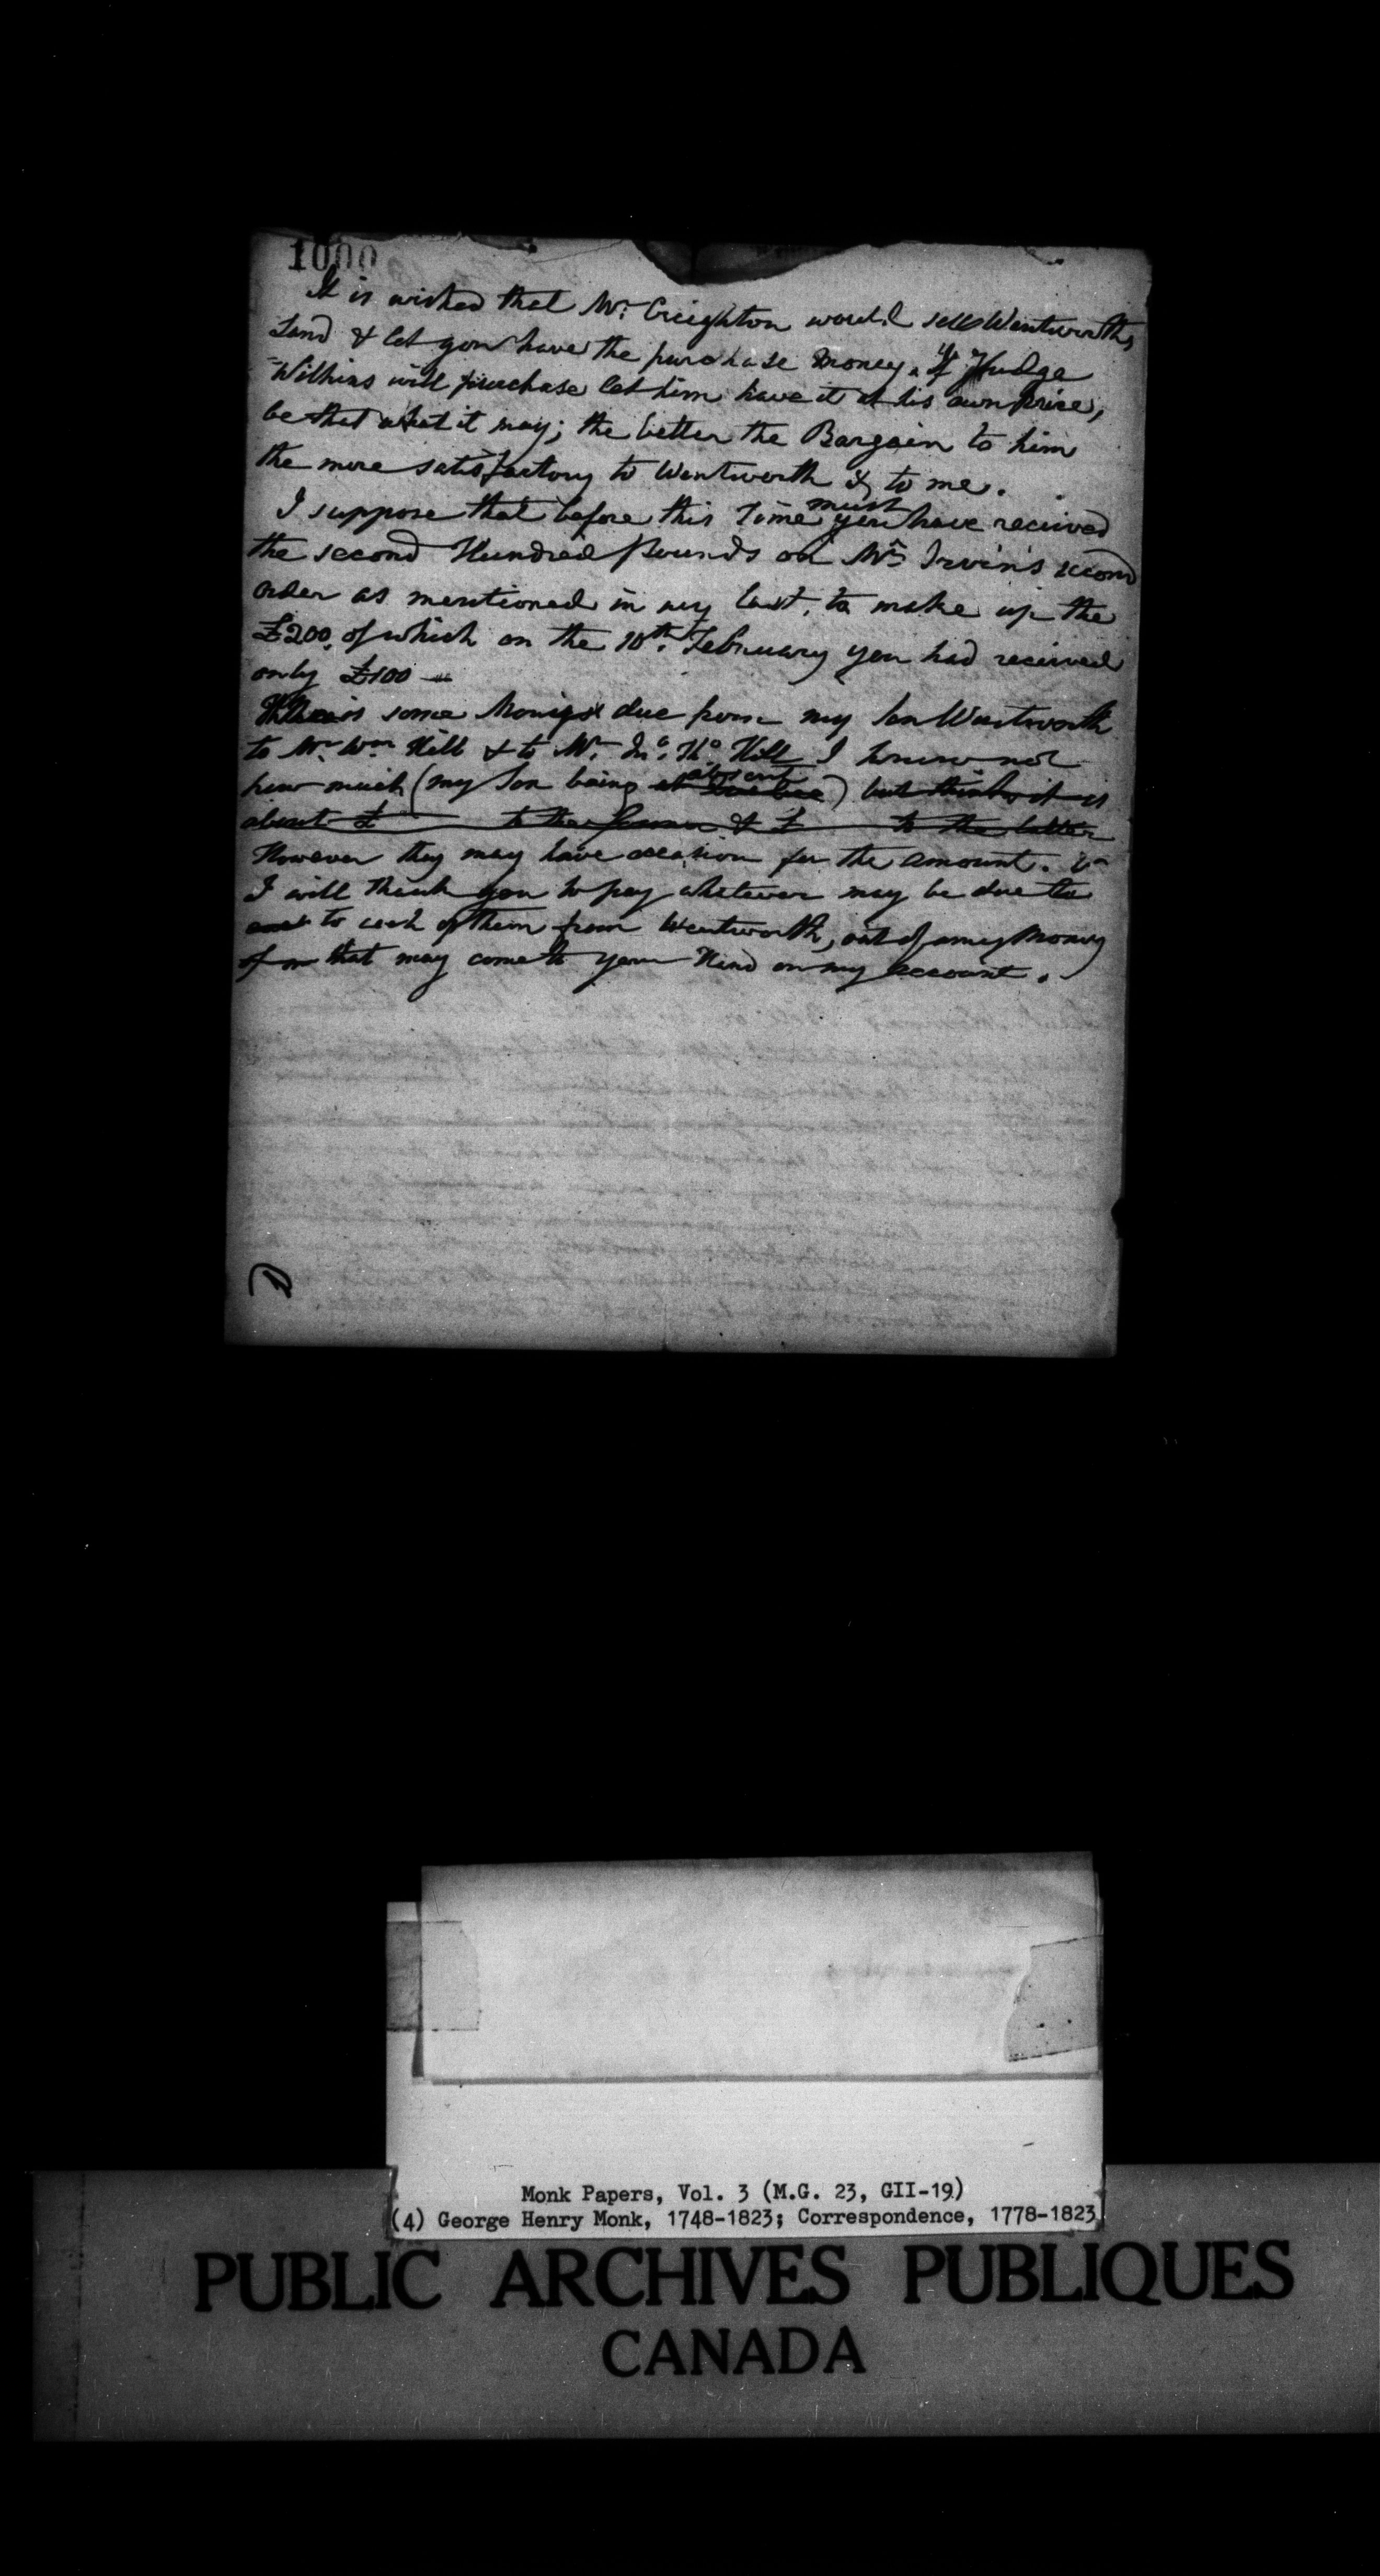 1000
It is wished that Mr. Creighton would sell Wentworths
Land & let you have the purchase Money. If Judge
Wilkins will purchase let him have it at his own price,
be that what it may; the better the Bargain to him
the more satisfactory to Wentworth & to me.
I suppose that before this Time must you have received
the second Hundred Pounds on Mrs Irvin's second
order as mentioned in my last, to make up the
£200, of which on the 10th. February you had received
only £100
There is some Money due from my Son Wentworth
to Mr. Wm Hill & to Mr. Jno. Ths. Hill I know not
how much (my Son being at Quebec absent) but think it is
about £ to the former & £ to the latter
However they may have occasion for the amount. &
I will thank you to pay whatever may be due to
and to each of them from Wentworth, out of any Money
of m that may come to your Hand on my account.
Monk Papers, Vol. 3 (M.G. 23, GII-19)
(4) George Henry Monk, 1748-1823; Correspondence, 1778-1823
PUBLIC ARCHIVES PUBLIQUES
CANADA